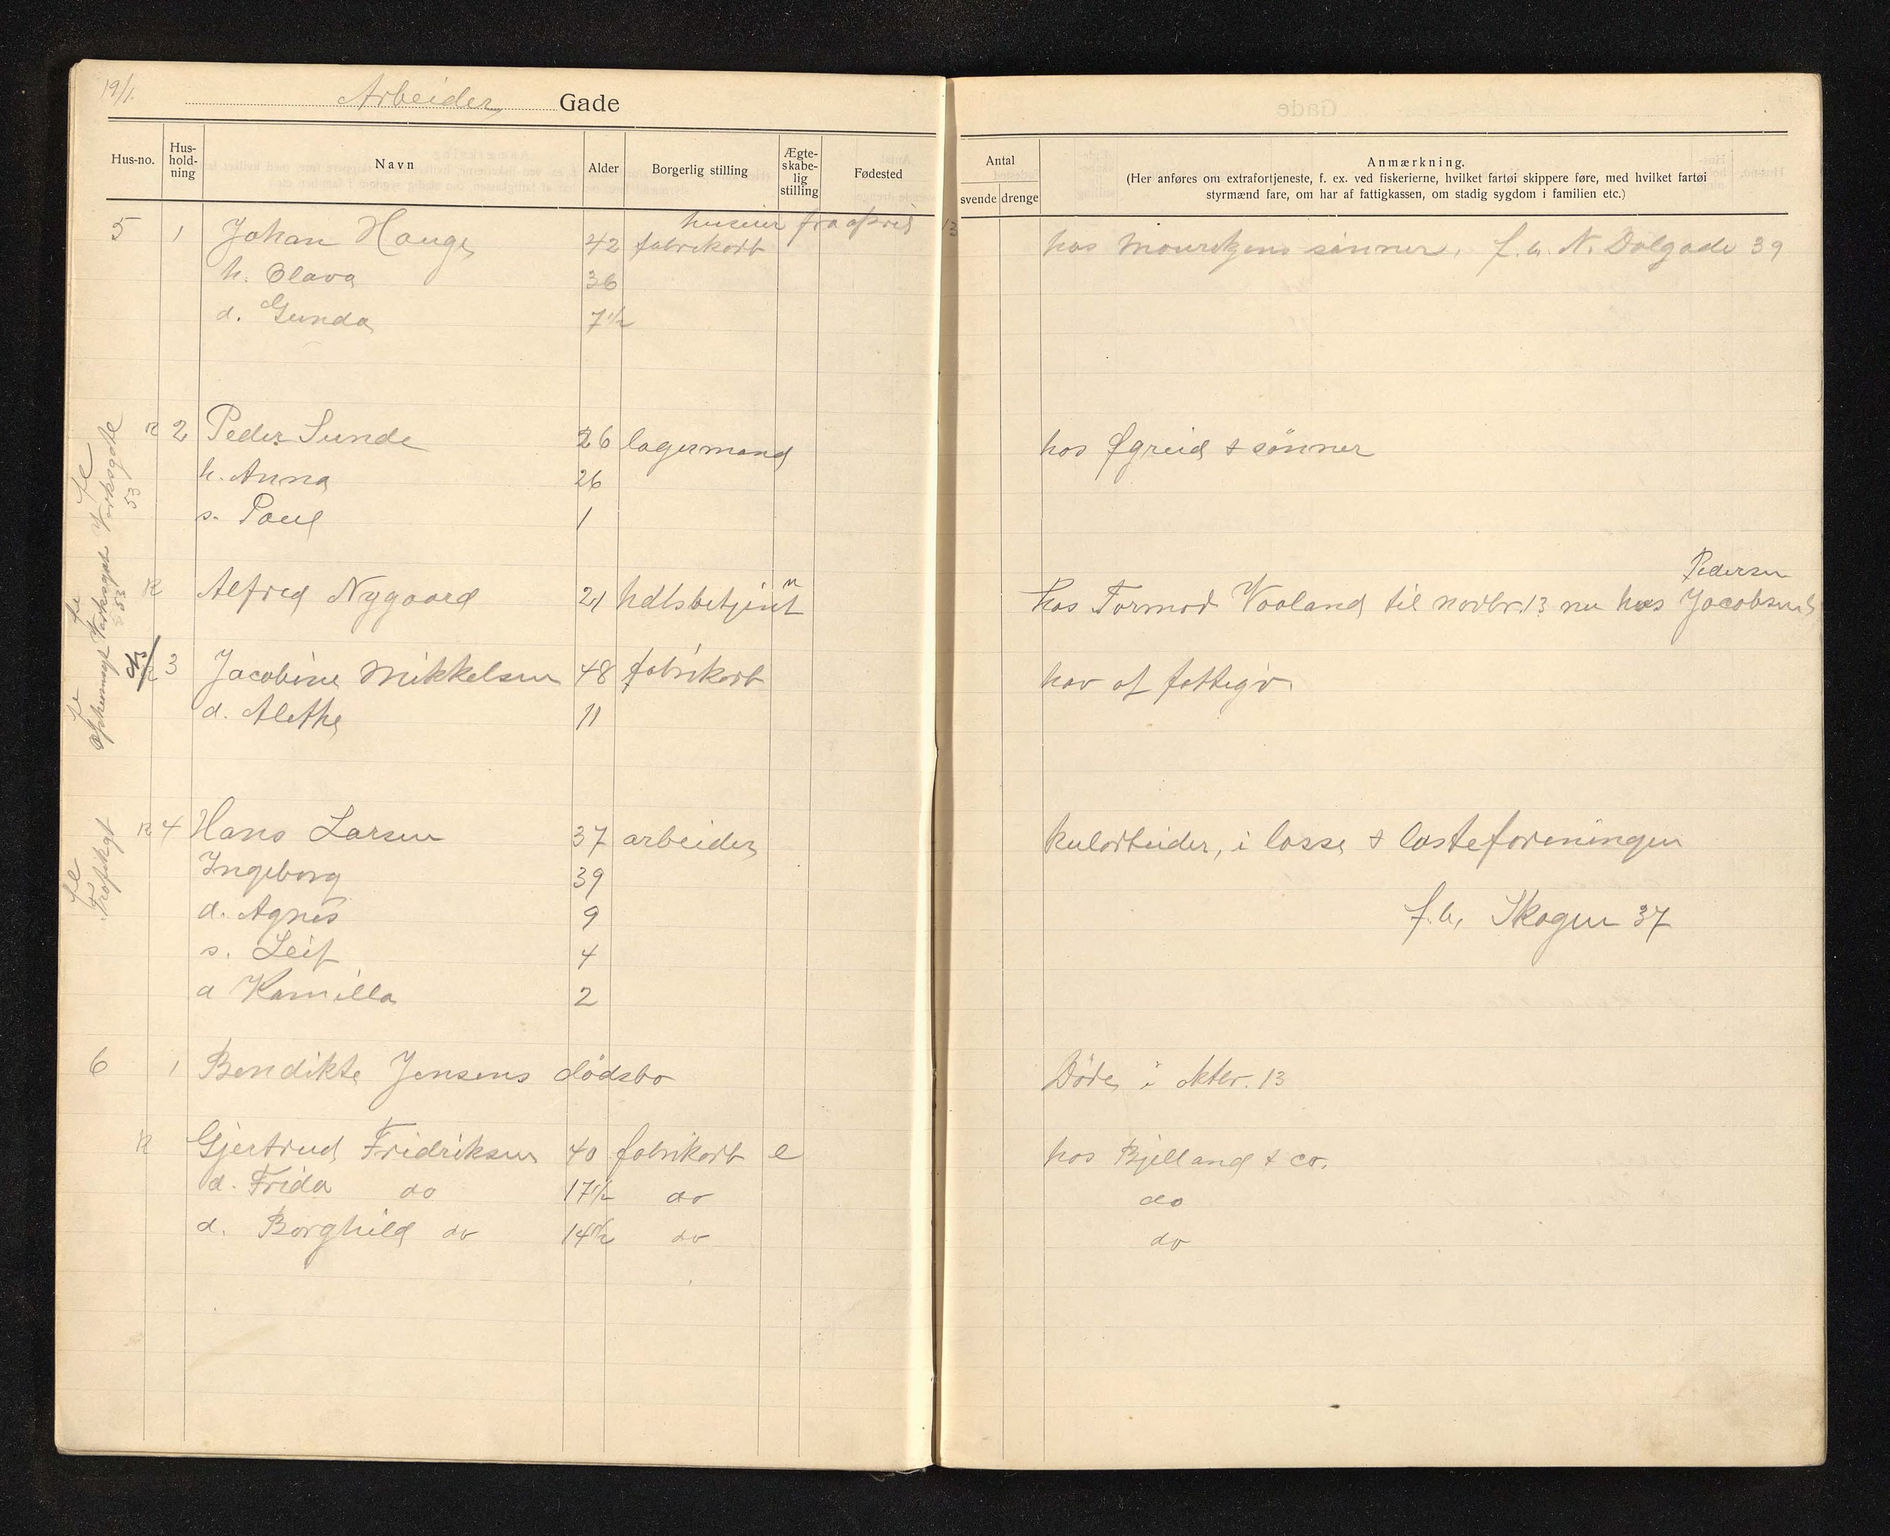 19/1.
Arbeider Gade
Hus-no. Hus-hold-ning Navn Alder Borgerlig stilling Ægte-skabe-lig stilling Fødested
Antal svende drenge Anmærkning.
(Her anføres om extrafortjeneste, f. ex. ved fiskerierne, hvilket fartøi skippere føre, med hvilket fartøi
styrmænd fare, om har af fattigkassen, om stadig sygdom i familien etc.)
huseier fra april 13
5 1 Johan Hauge 42 fabrikarb hos Mouritzens sønner. f.b. N. Dalgade 39
h. Olava 36
d. Gunda 7 1/2
R 2 Peder Sunde 26 lagermand hos Øgreid & sønner
h. Anna 26
s. Paul 1
fl Verksgate 53
Pedersen
R Alfred Nygaard 21 hdlsbetjent hos Tormod Vaaland til novbr. 13 nu hos Jacobsen
fl Verksgat 53
R 3 Jacobine Mikkelsen 48 fabrikarb hav af fattigv.
d. Alethe 11
fl
R 4 Hans Larsen 37 arbeider kularbeider, i losse & lasteforeningen
Ingeborg 39
d. Agnes 9 f.b. Skagen 37
s. Leif 4
d Kamilla 2
fl
6 1 Bendikte Jensens dødsbo Døde i oktbr. 13
R Gjertrud Fridriksen 40 fabrikarb e hos Bjelland & co.
d. Frida do 17 1/2 do do
d. Borghild do 14 1/2 do do